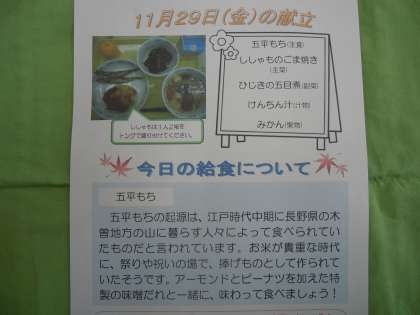 11月29日(金)の献立
五平もち(主食)
ししゃものごま焼き
(主菜)
ひじきの五目煮(副菜)
けんちん汁(汁物)
みかん(果物)
ししゃもは1人2尾を
トングで盛り付けてください。
今日の給食について
五平もち
五平もちの起源は、江戸時代中期に長野県の木
曽地方の山に暮らす人々によって食べられてい
たものだと言われています。お米が貴重な時代
に、祭りや祝いの場で、捧げものとして作られて
いたそうです。アーモンドとピーナツを加えた特
製の味噌だれと一緒に、味わって食べましょう!